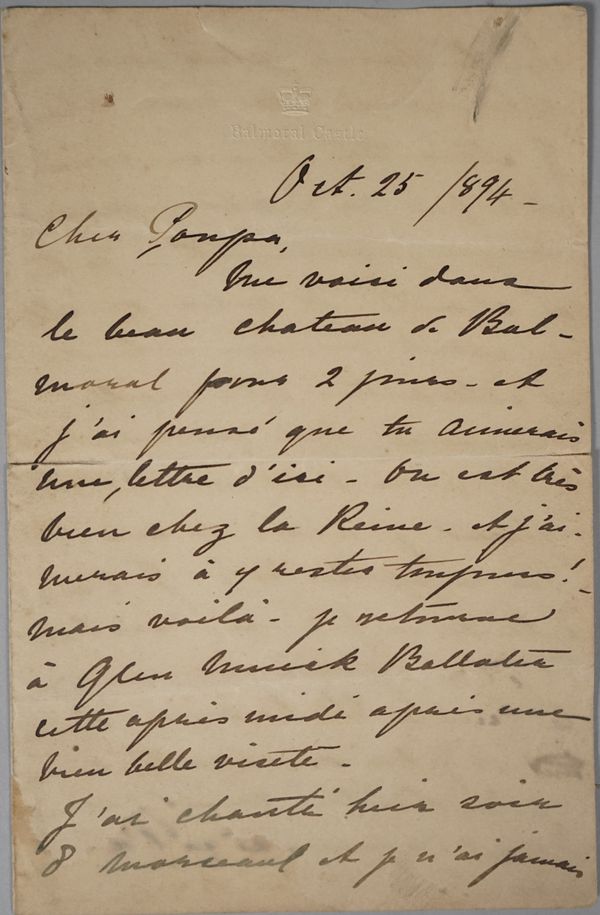 Balmoral Castle
Oct. 25 1894 -
Cher Poupa,
Me voici dans
le beau chateau de Bal-
moral pour 2 jours - et
j'ai pensé que tu aimerais
une lettre d'ici - On est très
bien chez la Reine - et j'ai-
merais à y rester toujours! -
mais voilà - je retourne
à Glen Muick Ballater
cette après midi après une
bien belle visite -
J'ai chanté hier soir
8 morceaux et je n'ai jamais